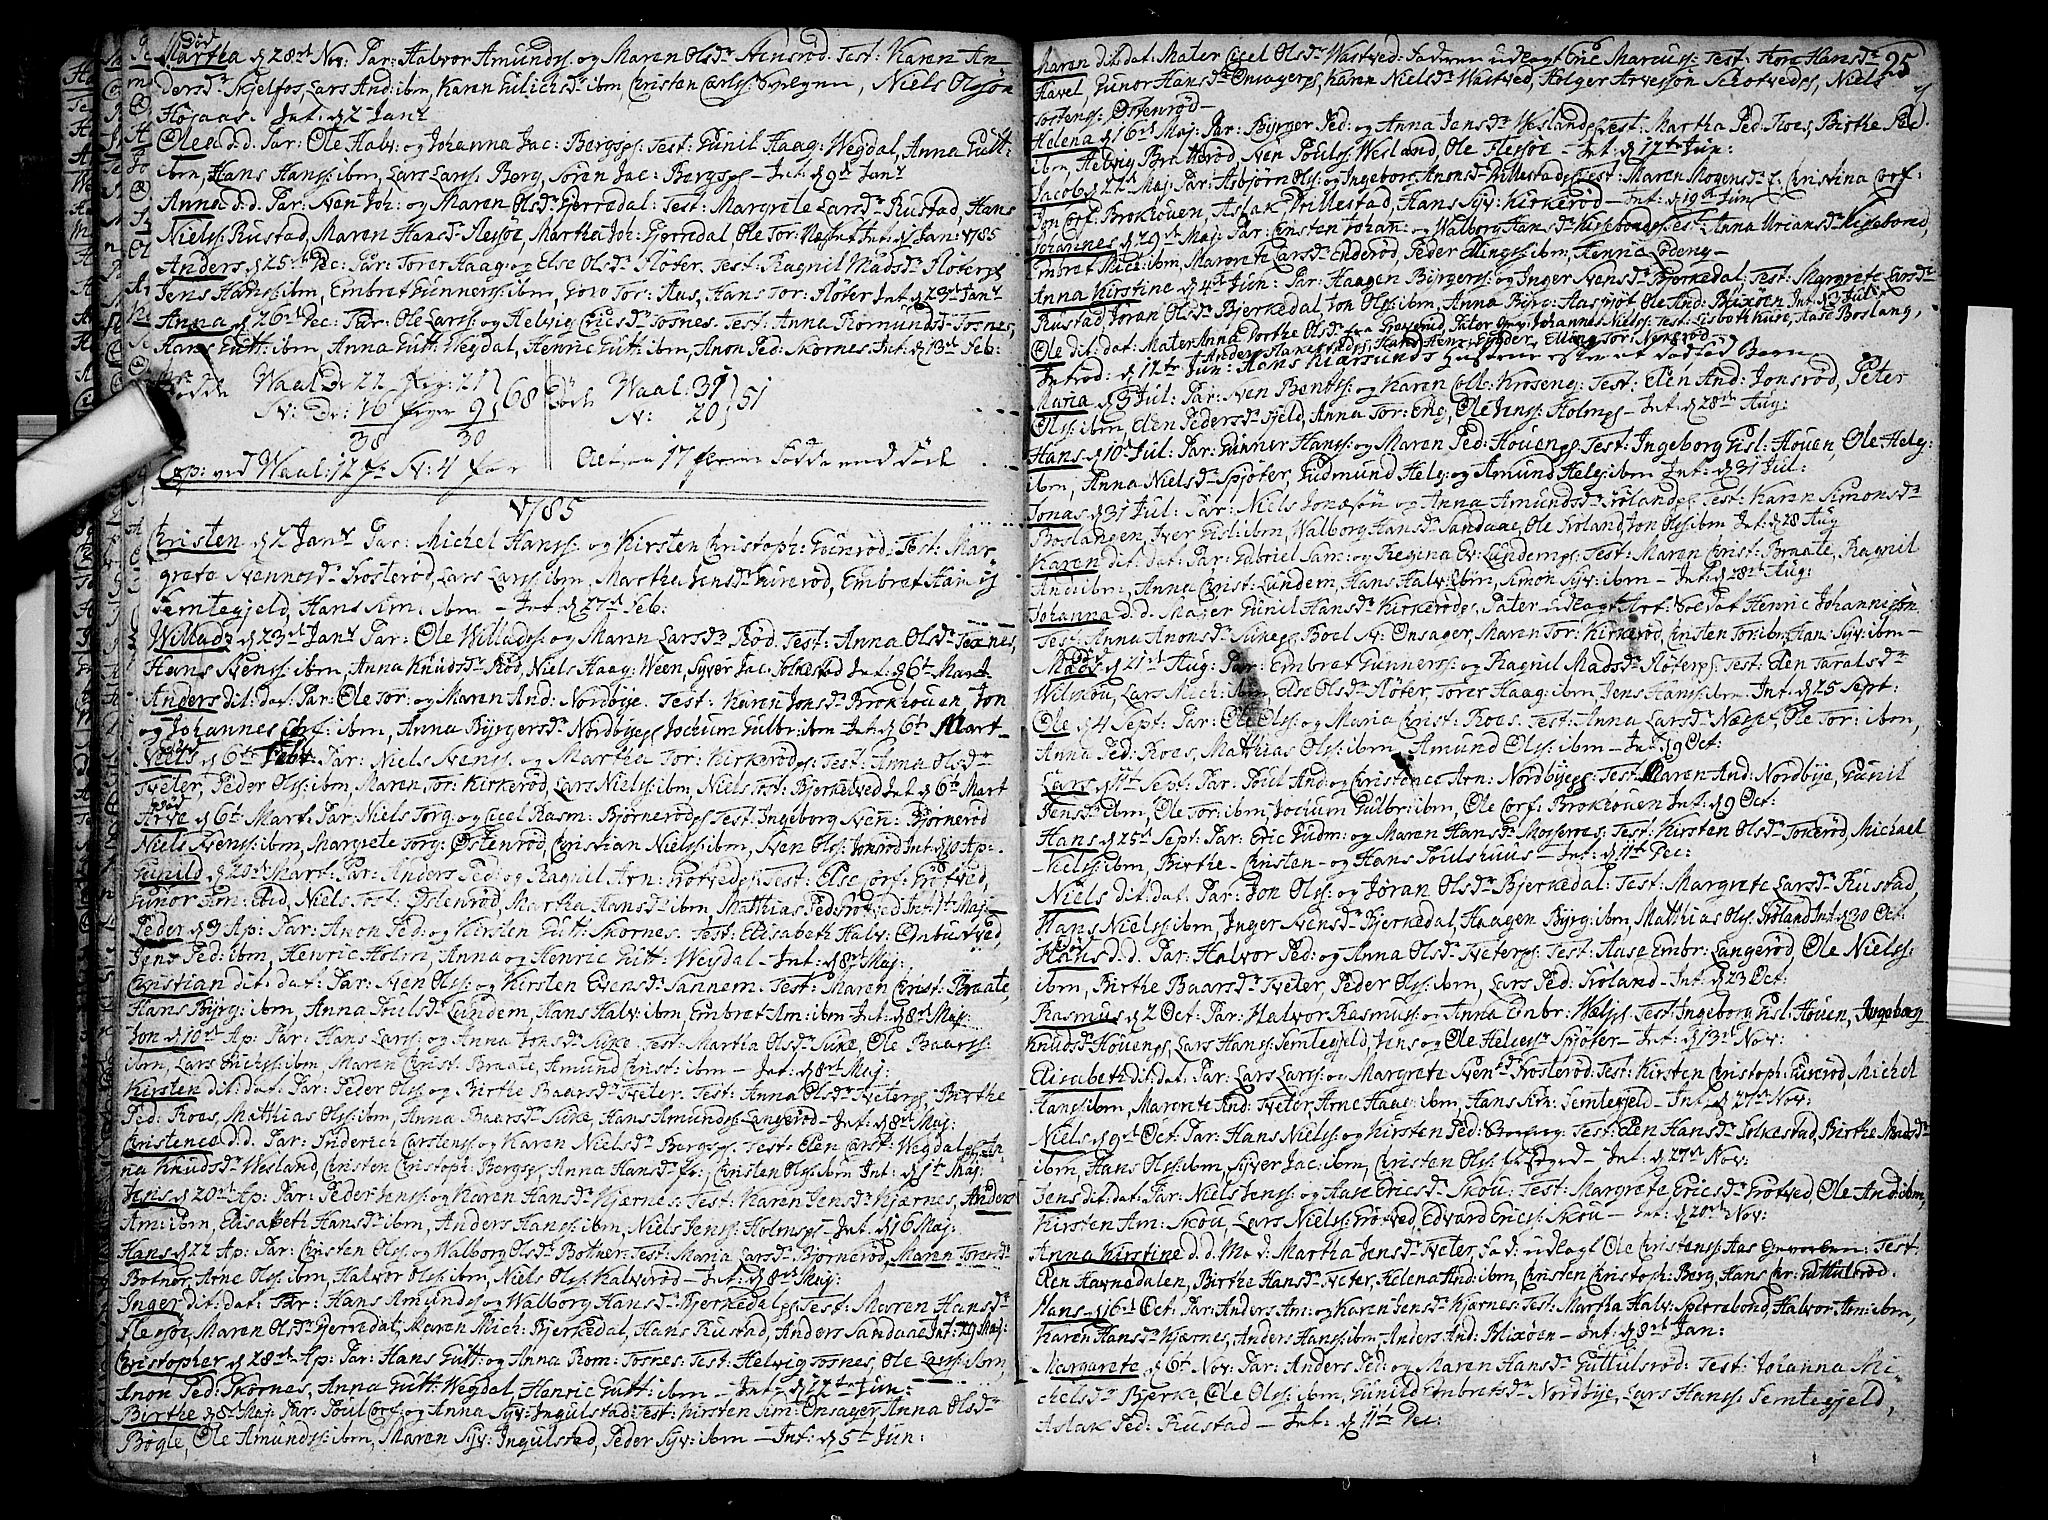 død
Martha d 28de Nov: Par: Halvor Amunds: og Maren Olsdr Test: Karen An-
dersdr Skjelfos, Lars And: ibm, Karen Gulichsdr ibm, Christen Carls: Niels Olssøn
Højaas. Int: d 2 Janv
Olea d.d. Par: Ole Halv: og Johanna Jac: Bergsejer Test: Gunil Haag: Wegdal, Anna Gutt:
ibm, Hans Hans: ibm, Lars Lars: Berg, Søren Jac: Bergs — Int: d 9de Janv
Anna d.d. Par: Sven Joh: og Maren Olsdr Gjerredal: Test: Margrete Larsdr Rustad, Hans
Niels: Rustad, Maren Hansdr Flesjøe, Martha Joh: Gjerredal Ole Tor: Int: d Jan: 1785
Anders d 25de Dec: Par: Torer Haag: og Else Olsdr Fløter. Test: Ragnil Madsdr Fløter
Jens Hans: ibm, Embret Gunners: ibm, Goro Tor: Aus, Hans Tor: Fløter Int: d 23de Janv
Anna d 26de Dec: Par: Ole Lars: og Helvig Ericsdr Tosnes. Test: Anna Romundsdr Tosnes,
Hans Gutt: ibm, Anna Gutt: Wegdal, Henric Gutt: ibm, Anon Ped: Skornes. Int: d 13de Feb:
Fødde Waal: Dr 22 piger 21 } 68 Døde Waal: 31 } 51
N: Dr: 16 piger 9 N: 20
38 30
Cop: ved Waal: 12 pr N: 4 par 17 flere fødde end døde
1785
Christen d 2 Janv Par: Michel Hans: og Kirsten Christoph: Test: Mar-
grete Svennesdr Trosterød, Lars Lars: ibm, Martha Jensdr Furerød, Embret
Semtegjeld, Hans Sim: ibm — Int: d 27de Feb:
Willads d 23de Janv Par: Ole Willads: og Maren Larsdr Rød Test: Anna Olsdr Tosnes,
Hans Svens: ibm, Anna Knudsdr Rød, Niels Haag: Ween, Syver Jac: Folkestad Int: d 6te Mart
Anders dit: dat: Par: Ole Tor: og Maren And: Nordbye. Test: Karen Jonsdr Brokhouen, Jon
og Johannes Corf: ibm, Anna Byrgersdr Nordbye Jochum Gulbr: ibm Int: d 6te Mart —
Niels d 6te Feb: Par: Niels Svens: og Martha Tor: Kirkerød Test: Anna Olsdr
Tveter, Peder Ols: ibm, Maren Tor: Kirkerød, Lars Niels: ibm, Niels Tost: Bjerketved Int: d 6te Mart
død
Arve d 6te Mart: Par: Niels Torg: og Cicel Rasm: Bjørnerød Test: Ingeborg Sven: Bjørnerød
Niels Svens: ibm, Margrete Torg: Østenrød, Christian Niels: ibm, Sven Ols: Jonsrød Int: d Ap:
Gunild d 20de Mart: Par: Anders Ped: og Ragnil Arn: Grotved Test: Else Corf: Grotved,
Gunor Am: Eid, Niels Tost: Østenrød, Martha Hansdr ibm, Matthias Ped: Grotved Int: 1te Maj
Peder d 3 Ap: Par: Anon Ped: og Kirsten Gutt: Skornes. Test: Elisabeth Halv: Onbustved,
Jens Ped: ibm, Henric Holm, Anna og Henric Gutt: Wegdal — Int: d 8de Maj:
Christian dit: dat: Par: Sven Ols: og Kirsten Evensdr Sannem Test: Maren Christ: Braate,
Hans Byrg: ibm, Anna Poulsdr Lundem, Hans Halv: ibm, Embret Am: ibm Int: d 8de Maj:
Jon d 10de Ap: Par: Hans Lars: og Anna Jonsdr Suke Test: Martha Olsdr Suke Ole Baars:
ibm, Lars Erichs: ibm, Maren Christ: Braate, Amund Christ: ibm — Int: d 8de Maj:
Kirsten dit: dat: Par: Peder Ols: og Birthe Baarsdr Tveter. Test: Anna Olsdr Tveter Birthe
Ped: Roes, Matthias Ols: ibm, Anna Baarsdr Suke, Hans Amunds: Langerød — Int: d 8de Maj:
Christence d.d. Par: Inderich Carstens: og Karen Nielsdr Bergs Test: Elen Carst: Wegdal, An-
na Knudsdr Wesland, Christen Christoph: Bergs, Anna Hansdr Christen Ols: ibm Int: d Maj:
Jens d 20de Ap: Par: Peder Jens: og Karen Hansdr Kjærnes: Test: Karen Jensdr Kjærnes, Anders
Am: ibm, Elisabeth Hansdr ibm, Anders Hans: ibm, Niels Jens: Holms — Int: d 16 Maj:
Hans d 22 Ap: Par: Christen Ols: og Walborg Olsdr Botner: Test: Maria Larsdr Bjørnerød, Maren Toresdr
Botner, Arne Ols: ibm, Halvor Ols: ibm, Niels Ols: Kalverød — Int: d 8de Maj:
Inger dit: dat: Par: Hans Amunds: og Walborg Hansdr Bjerkedal Test: Maren Hansdr
Flesjøe, Maren Olsdr Gjerredal, Maren Mich: Bjerkedal, Hans Rustad, Anders Sandaae Int: 29 Maj:
Christopher d 28de Ap: Par: Hans Gutt: og Anna Rom: Tosnes: Test: Helvig Tosnes, Ole Lars: ibm,
Anon Ped: Skornes, Anna Gutt: Wegdal, Henric Gutt: ibm — Int: d 12te Jun:
Birthe d 8de Maj: Par: Poul Corf: og Anna Syv: Ingulstad: Test: Kirsten Sim: Onsager, Anna Olsdr
Bøgle, Ole Amunds: ibm, Maren Syv: Ingulstad, Peder Syv: ibm — Int: d 5te Jun:
25
Maren dit: dat: Mater Cicel Olsdr Wastved: Faderen udlagt Eric Marcus: Test: Hansdr
Aavel, Gunor Hansdr Onsager, Karen Nielsdr Wastved, Holger Arvesson Slotved, Niels
Tostens: Østenrød —
Helena d 16de Maj: Par: Byrger Ped: og Anna Jensdr Wesland Test: Martha Ped: Roes, Birthe Ped:
ibm, Helvig Bratterød, Sven Pouls: Wesland, Ole Flesjøe — Int: d 12te Jun:
Jacob d 22de Maj: Par: Asbjørn Ols: og Ingeborg Anonsdr Willestad Test: Maren Mogensdr Christina Corf:
Jon Corf: Brokhouen, Aslak Willestad, Hans Syv: Kirkerød — Int: d 19de Jun:
Johannes d 29de Maj: Par: Christen Johan: og Walborg Hansdr Kisebond Test: Anna Uriansdr Kisebond,
Embret Mich: ibm, Margrete Larsdr Enderød, Peder Ellings: ibm, Henric Lodeng —
Anna Kirstine d 4de Jun: Par: Haagen Byrgers: og Inger Svensdr Bjerkedal Test: Margrete Larsdr
Rustad, Jøran Olsdr Bjerkedal, Jon Ols: ibm, Anna Byrg: Aasgjøt Ole And: Blixøen Int: d 3 Jul:
Ole dit: dat: Mater Anna Dorthe Olsdr fra Groverud, Pater Johannes Niels: Test: Lisbeth Kure, Aase Boslang,
Anders Hans Jens: Elling Tor: Nenrød
Introd: d 12te Jun: Hans Hustroe efter et dødfød Barn
Maria d 3 Jul: Par: Sven Bents: og Karen Coll: Kroseng: Test: Elen And: Jonsrød, Peter
Ols: ibm, Elen Pedersdr Fjeld, Anna Tor: Eng, Ole Jens: Holms — Int: d 28de Aug:
Hans d 10de Jul: Par: Gunner Hans: og Maren Ped: Houen Test: Ingeborg Gisl: Houen, Ole Helg:
ibm, Anna Nielsdr Spjøter, Gudmund Helg: og Amund Helg: ibm — Int: d 31 Jul:
Jonas d 31 Jul: Par: Niels Jonassøn og Anna Amundsdr Froland Test: Karen Simonsdr
Boslangen, Iver Gisl: ibm, Walborg Hansdr Sandaae, Ole Froland, Jon Ols: ibm Int: d 28 Aug
Karen dit: dat: Par: Gabriel Sam: og Regina Ev: Lundem Test: Maren Christ: Braate, Ragnil
And: ibm, Anna Christ: Lundem, Hans Halv: ibm, Simon Syv: ibm — Int: d 28de Aug:
Johanna d.d. Mater Gunil Hansdr Kirkerød, Pater udlagt Art: Soldat Henric Johannissøn
Test: Anna Anonsdr Suke, Boel Sy: Onsager, Maren Tor: Kirkerød, Christen Tor: ibm, Hans Syv: ibm —
Mads d 21de Aug: Par: Embret Gunners: og Ragnil Madsdr Fløter Test: Elen Taralsdr
Wilskou, Lars Mich: ibm Else Olsdr Fløter, Torer Haag: ibm, Jens Hans: ibm Int: d 25 Sept:
Ole d 4 Sept: Par: Ole Ols: og Maria Christ: Roes. Test: Anna Larsdr Næsset, Ole Tor: ibm,
Anna Ped: Roes, Matthias Ols: ibm, Amund Ols: ibm — Int: d 9 Oct:
Lars d 11te Sept: Par: Poul And: og Christence Arn: Nordbye Test: Maren And: Nordbye, Gunil
Jensdr ibm, Ole Tor: ibm, Jochum Gulbr: ibm, Ole Corf: Brokhouen Int: d 9 Oct:
Hans d 25de Sept: Par: Eric Gudm: og Maren Hansdr Mosseros: Test: Kirsten Olsdr Tonerød, Michael
Niels: ibm, Birthe - Christen - og Hans Poulshuus — Int: d 11te Dec:
Niels dit: dat: Par: Jon Ols: og Jøran Olsdr Bjerkedal: Test: Margrete Larsdr Rustad,
Hans Niels: ibm, Inger Svensdr Bjerkedal, Haagen Byrg: ibm, Matthias Ols: Froland Int: d 30 Oct:
død
Hans d.d. Par: Halvor Ped: og Anna Olsdr Tveter Test: Aase Embr: Langerød, Ole Niels:
ibm, Birthe Baarsdr Tveter, Peder Ols: ibm, Lars Ped: Froland — Int: d 23 Oct:
Rasmus d 2 Oct: Par: Halvor Rasmus: og Anna Embr: Test: Ingeborg Gisl: Houen, Ingeborg
Knudsdr Houen, Lars Hans: Semtegjeld, Jens og Ole Helges: Spjøter — Int: d 13de Nov:
Elisabeth dit: dat: Par: Lars Lars: og Margrete Svensdr Trosterød: Test: Kirsten Christoph: Furerød, Michel
Hans: ibm, Margrete And: Tveter, Arne Haag: ibm, Hans Sim: Semtegjeld — Int: d 27de Nov:
Niels d 9de Oct: Par: Hans Niels: og Kirsten Ped: Test: Elen Hansdr Folkestad, Birthe Madsdr
ibm, Hans Ols: ibm, Syver Jac: ibm, Christen Ols: — Int: d 27de Nov:
Jens dit: dat: Par: Niels Jens: og Aase Ericsdr Skou: Test: Margrete Ericsdr Grotved, Ole And: ibm,
Kirsten Am: Skou, Lars Niels: Grotved, Edvard Erics: Skou — Int: d 20de Nov:
Anna Kirstine d.d. Mad: Martha Jensdr Tveter, Fad: udlagt Ole Christens: Aas Test:
Elen Havnedalen, Birthe Hansdr Tveter, Helena And: ibm, Christen Christoph: Berg, Hans Chr: Guttulsrød.
Hans d 16de Oct: Par: Anders Am: og Karen Jensdr Kjærnes: Test: Martha Halv: Spirrebond, Halvor Am: ibm,
Karen Hansdr Kjærnes, Anders Hans: ibm Anders And: Blixøen — Int: d 8de Jan:
Margarete d 6te Nov: Par: Anders Ped: og Maren Hansdr Guttulsrød: Test: Johanna Mi-
chelsdr Bjerke, Ole Ols: ibm, Gunild Embretsdr Nordbye, Lars Hans: Semtegjeld,
Aslak Ped: Rustad — Int: d 11te Dec: